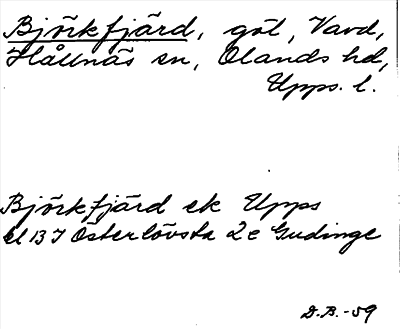 Björkfjärd, göl, Vavd,
Hållnäs sn, Olands hd,
Upps. l.
Björkfjärd ek Upps
bl 13 I Österlövsta 2 e Gudinge
D.B.-59